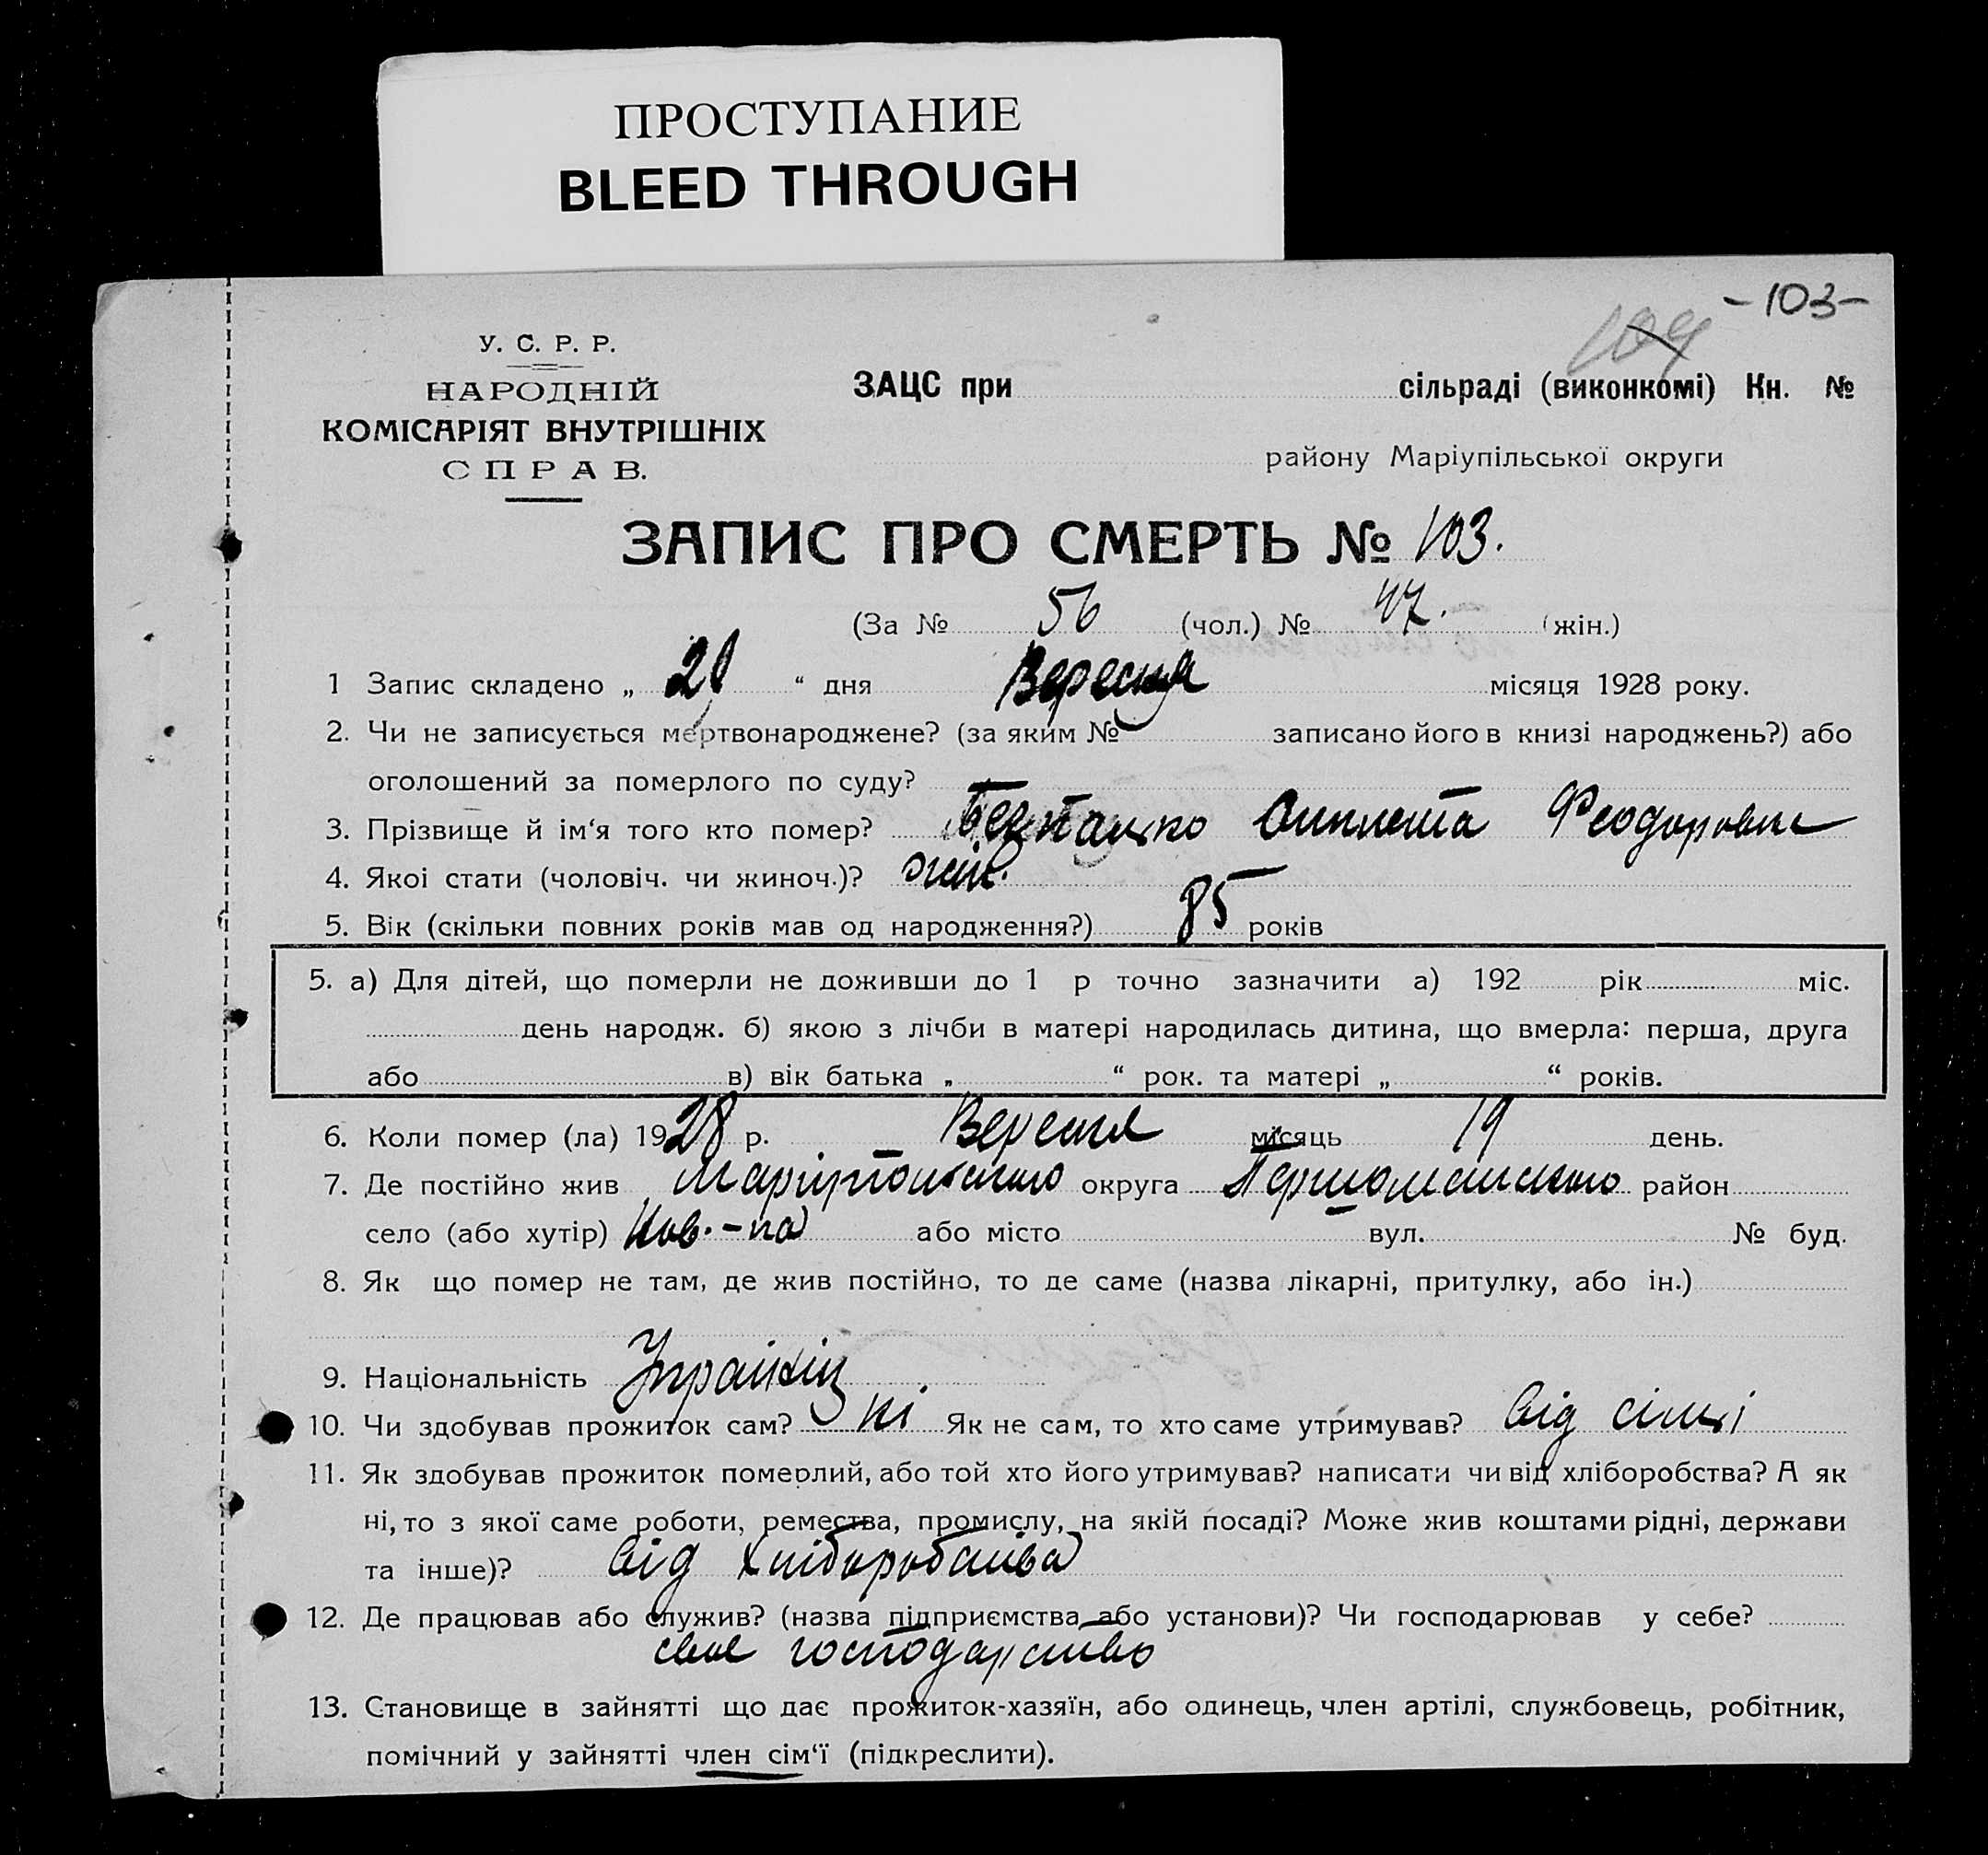 ПРОСТУПАНИЕ
BLEED THROUGH
-103-
104
У. С. Р. Р.
НАРОДНІЙ
КОМІСАРІЯТ ВНУТРІШНІХ
СПРАВ.
ЗАЦС при сільраді (виконкомі) Кн. №
району Маріупільської округи
ЗАПИС ПРО СМЕРТЬ № 103.
(За № 56 (чол.) № 47. (жін.)
1 Запис складено „ “ дня Вересня місяця 1928 року.
2. Чи не записується мертвонароджене? (за яким № записано його в книзі народжень?) або
оголошений за померлого по суду?
3. Прізвище й ім‘я того кто помер? Феодоровна
4. Якоі стати (чоловіч. чи жиноч.)? жін.
5. Вік (скільки повних років мав од народження?) 85 років
5. а) Для дітей, що померли не доживши до 1 р точно зазначити а) 192 рік міс.
день народж. б) якою з лічби в матері народилась дитина, що вмерла: перша, друга
або в) вік батька „ “ рок. та матері „ “ років.
6. Коли помер (ла) 1928 р. Вересня місяць 19 день.
7. Де постійно жив Маріупольського округа Першоманського район
село (або хутір) або місто вул. № буд.
8. Як що помер не там, де жив постійно, то де саме (назва лікарні, притулку, або ін.)
9. Національність Українц
10. Чи здобував прожиток сам? ні Як не сам, то хто саме утримував? від сімі
11. Як здобував прожиток померлий, або той хто його утримував? написати чи від хліборобства? А як
ні, то з якої саме роботи, ремества, промислу, на якій посаді? Може жив коштами рідні, держави
та інше)? від хліборобства
12. Де працював або служив? (назва підприємства або установи)? Чи господарював у себе?
своє господарство
13. Становище в зайнятті що дає прожиток-хазяїн, або одинець, член артілі, службовець, робітник,
помічний у зайнятті член сім‘ї (підкреслити).